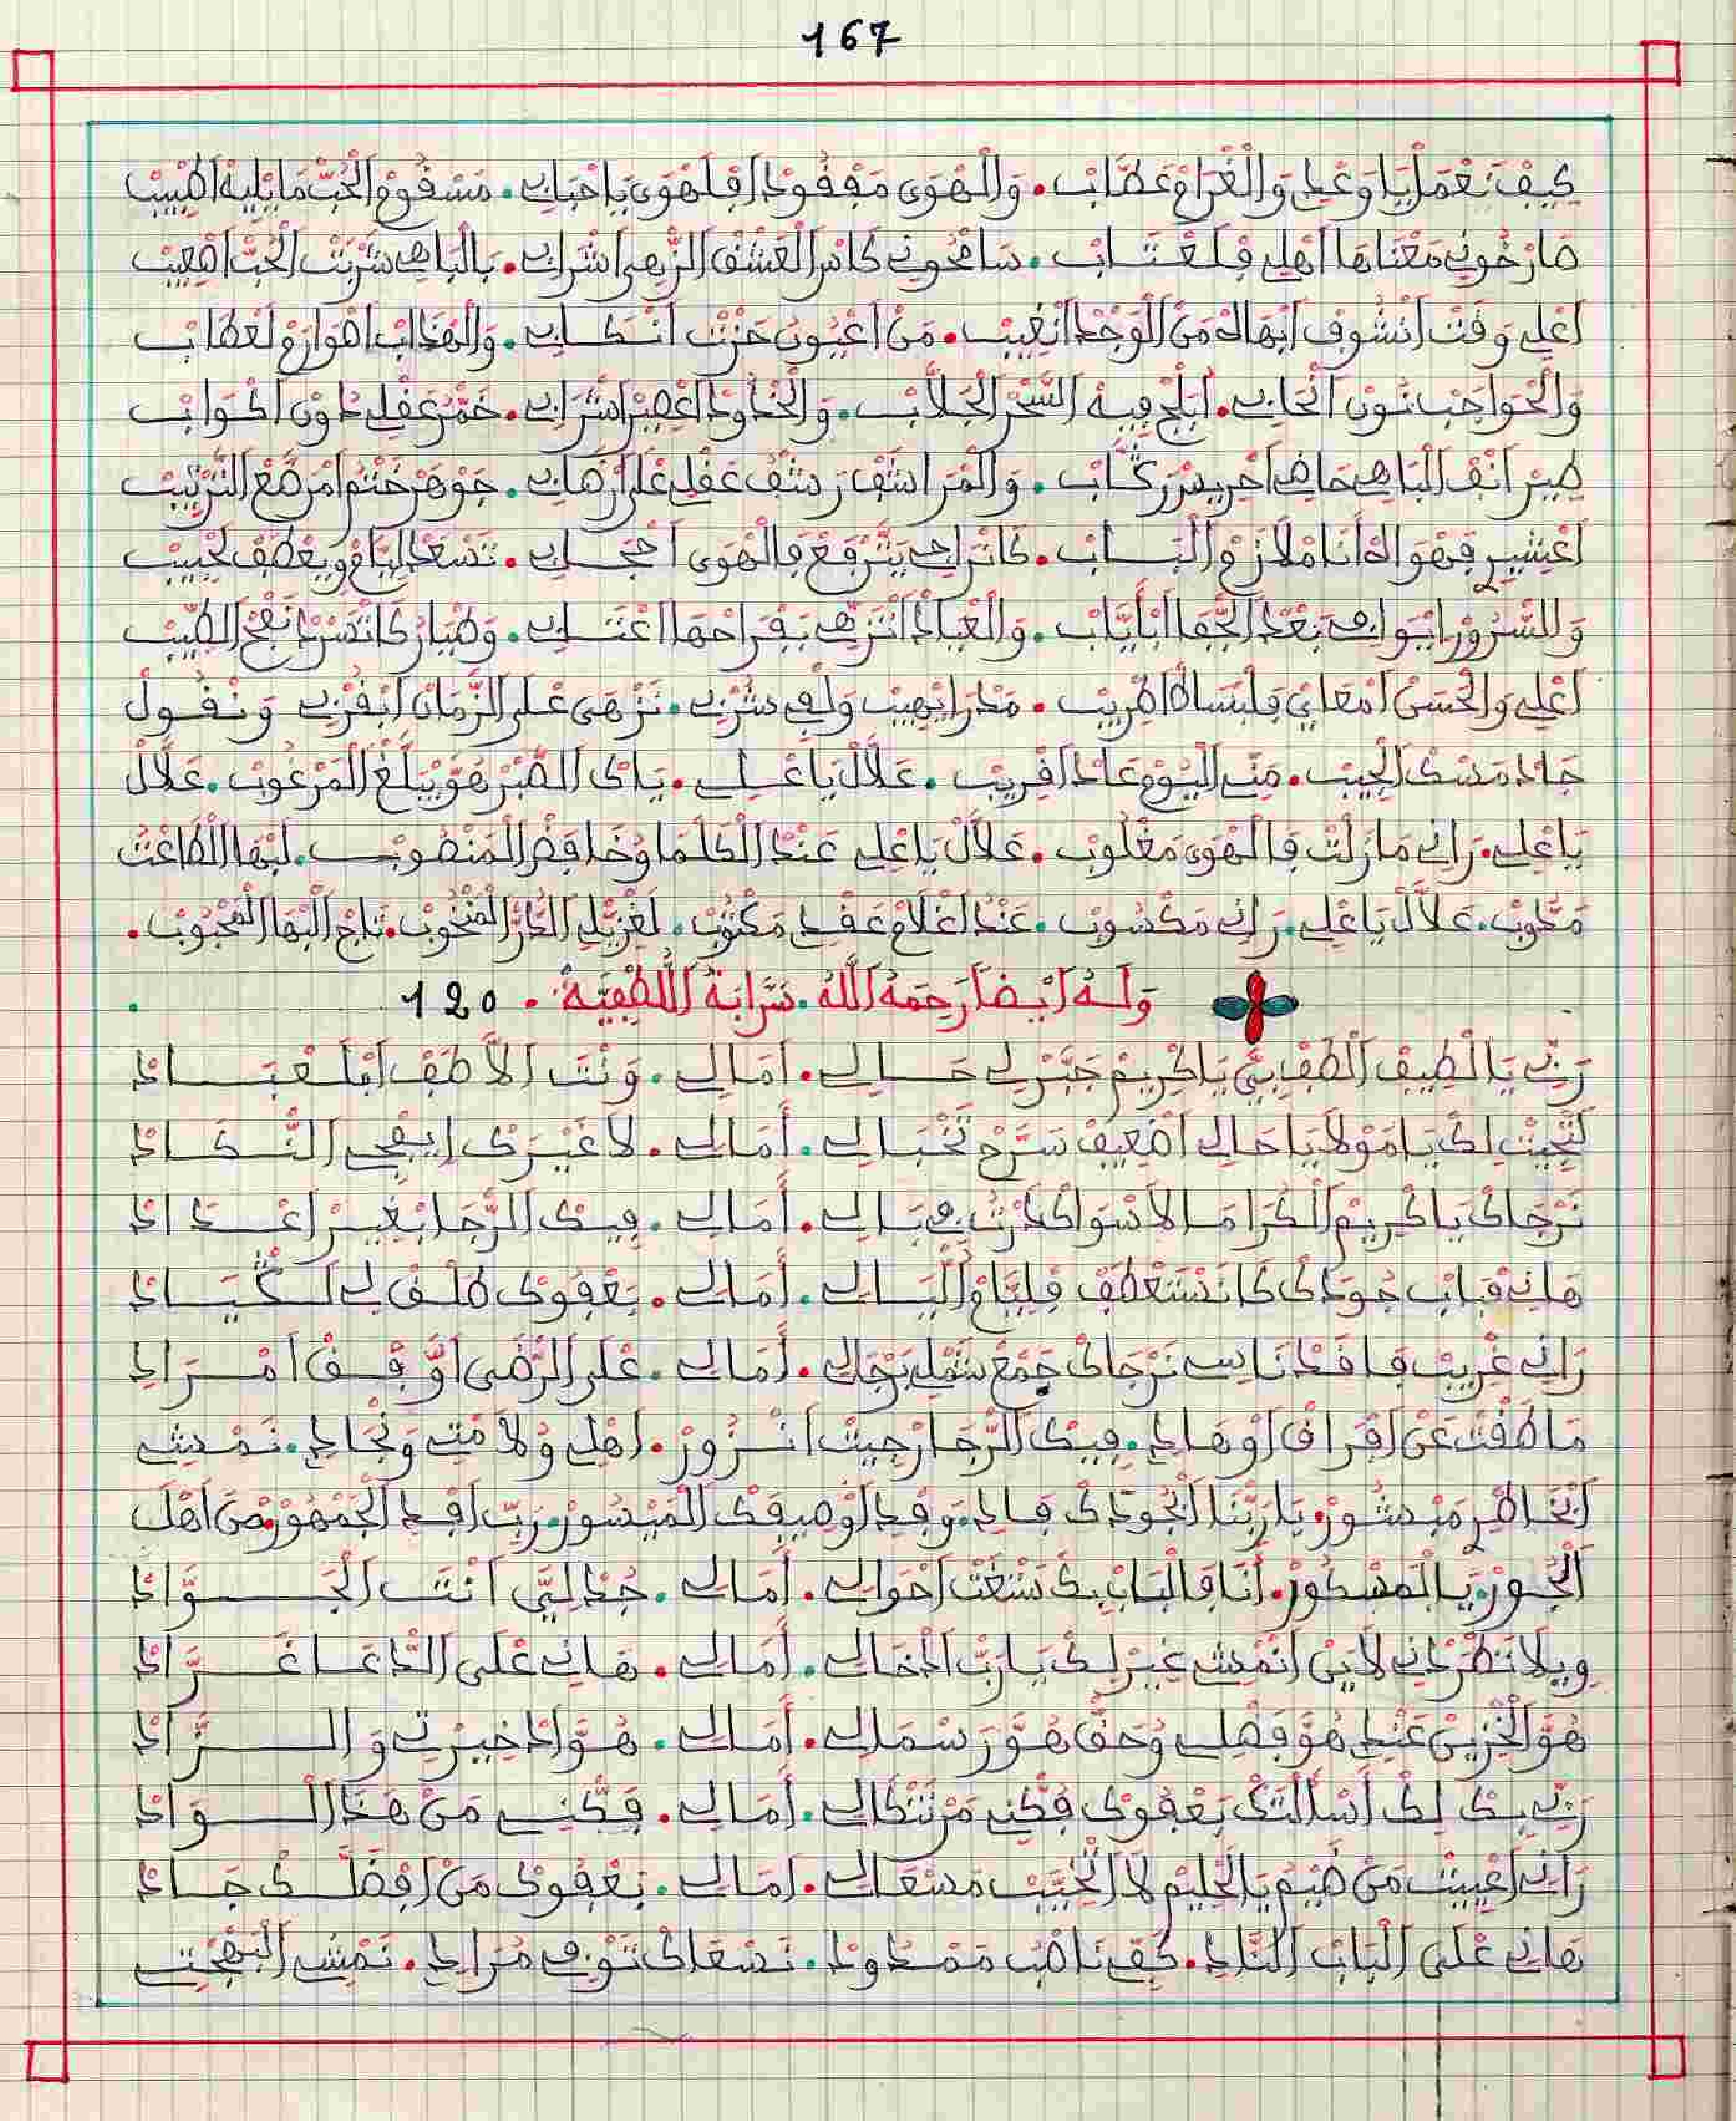 167
كيف نعمل يا وعدي والغرام عصاب . والهوى مفقود اقلهوى يا احبابي . مسقوم الحب ما يليه اطبيب
صارخوني معناها اهلي فلعتاب . سامحوني كاس العشق الزهى اشرابي . بالباهي شربت الحب اصعيب
اعلي وقت انشوف ابهاه من الوجد انغيب . من اعيون حزت انكابي . والهذاب اصوارم لعطاب
والحواجب نون الحابي . ابلج فيه السحر الجلاب . والخدود اعصير اشرابي . خمر عقلي دون اكواب
طير انف الباهي حاضي احريس ركاب . والمراشف رشف عقلي على ارضابي . جوهر ختم امرصع الترتيب
اعشير فهواه انا ملازم الباب . كانراجي يترفع فالهوى احجابي . تسعد ليام ويعطف لحبيب
والسرور ايواجي بعد الجفا اباياب . والعباد انزهى بفراحها اعتابي . وطيار كاتسرد انفح الطيب
اعلي والحسن امعاني فلبساط اطريب . مدرا يهيب ولفي شربي . نزهى على الزمان ابقربي ونقول
جاد مسك الجيب . مني اليوم عاد اقريب . علال يا علي . ياك الصبر هو يبلغ المرغوب . علال
يا علي . راني مازلت فالهوى مغلوب . علال يا علي عند الكلما وخافض المنصوب . لبها الطاعت
مجدوب . علال يا علي . راني مكسوب . عند اغلام عقدي مكتوب . لغزيل الدار المنخوب . تاج البها المحبوب .
وله أيضا رحمه الله . سرابة اللطفية . 120
ربي يا لطيف الطف بي يا كريم جبر لي حالي . أمالي . ونت الاطف ابلعباد
لتجيت لك يا مولايا حالي اضعيف سرح تخبالي . أمالي . لا غيرك ايفجي النكاد
نرجاك يا كريم الكراما لا سواك درت في بالي . أمالي . فيك الرجا بغير اعداد
هاني فباب جودك كانستعطف فليام والبالي . أمالي . بعفوك طلق لي الكياد
راني غريب فاقد ناسي نرجاك جمع شملي بجالي . أمالي . على الرضى او قف امرادي
ما طقت عن افراق اوهادي . فيك الرجا رجيت انزور . اهلي ولامتي ونجادي . نمشي
ابخاطر مبشور . يا ربنا الجودك فادي . وفد اوصيفك الميسور . ربي افد الجمهور . من اهل
الجور . يا المشكور . انا فالباب بك سعت احوالي . أمالي . جد ليي انت الجواد
ويلا نطرد اني لاين انمشي غير لك يا رب ادخالي . أمالي . هاني على الدعا غراد
هو الخزين عندي هو فضلي وحق هو رسمالي . أمالي . هو اد خيرتي والزاد
ربي بك لك اسالتك بعفوك فكني من تنكالي . أمالي . فكني من هذا الواد
راني اعييت من ضيم يا الحليم لا لخيب مسعالي . أمالي . بعفوك من افضلك جاد
هاني على الباب اناد . كفي ناصب ممدود . نسعاك توفي مرادي . نمشي البهجتي